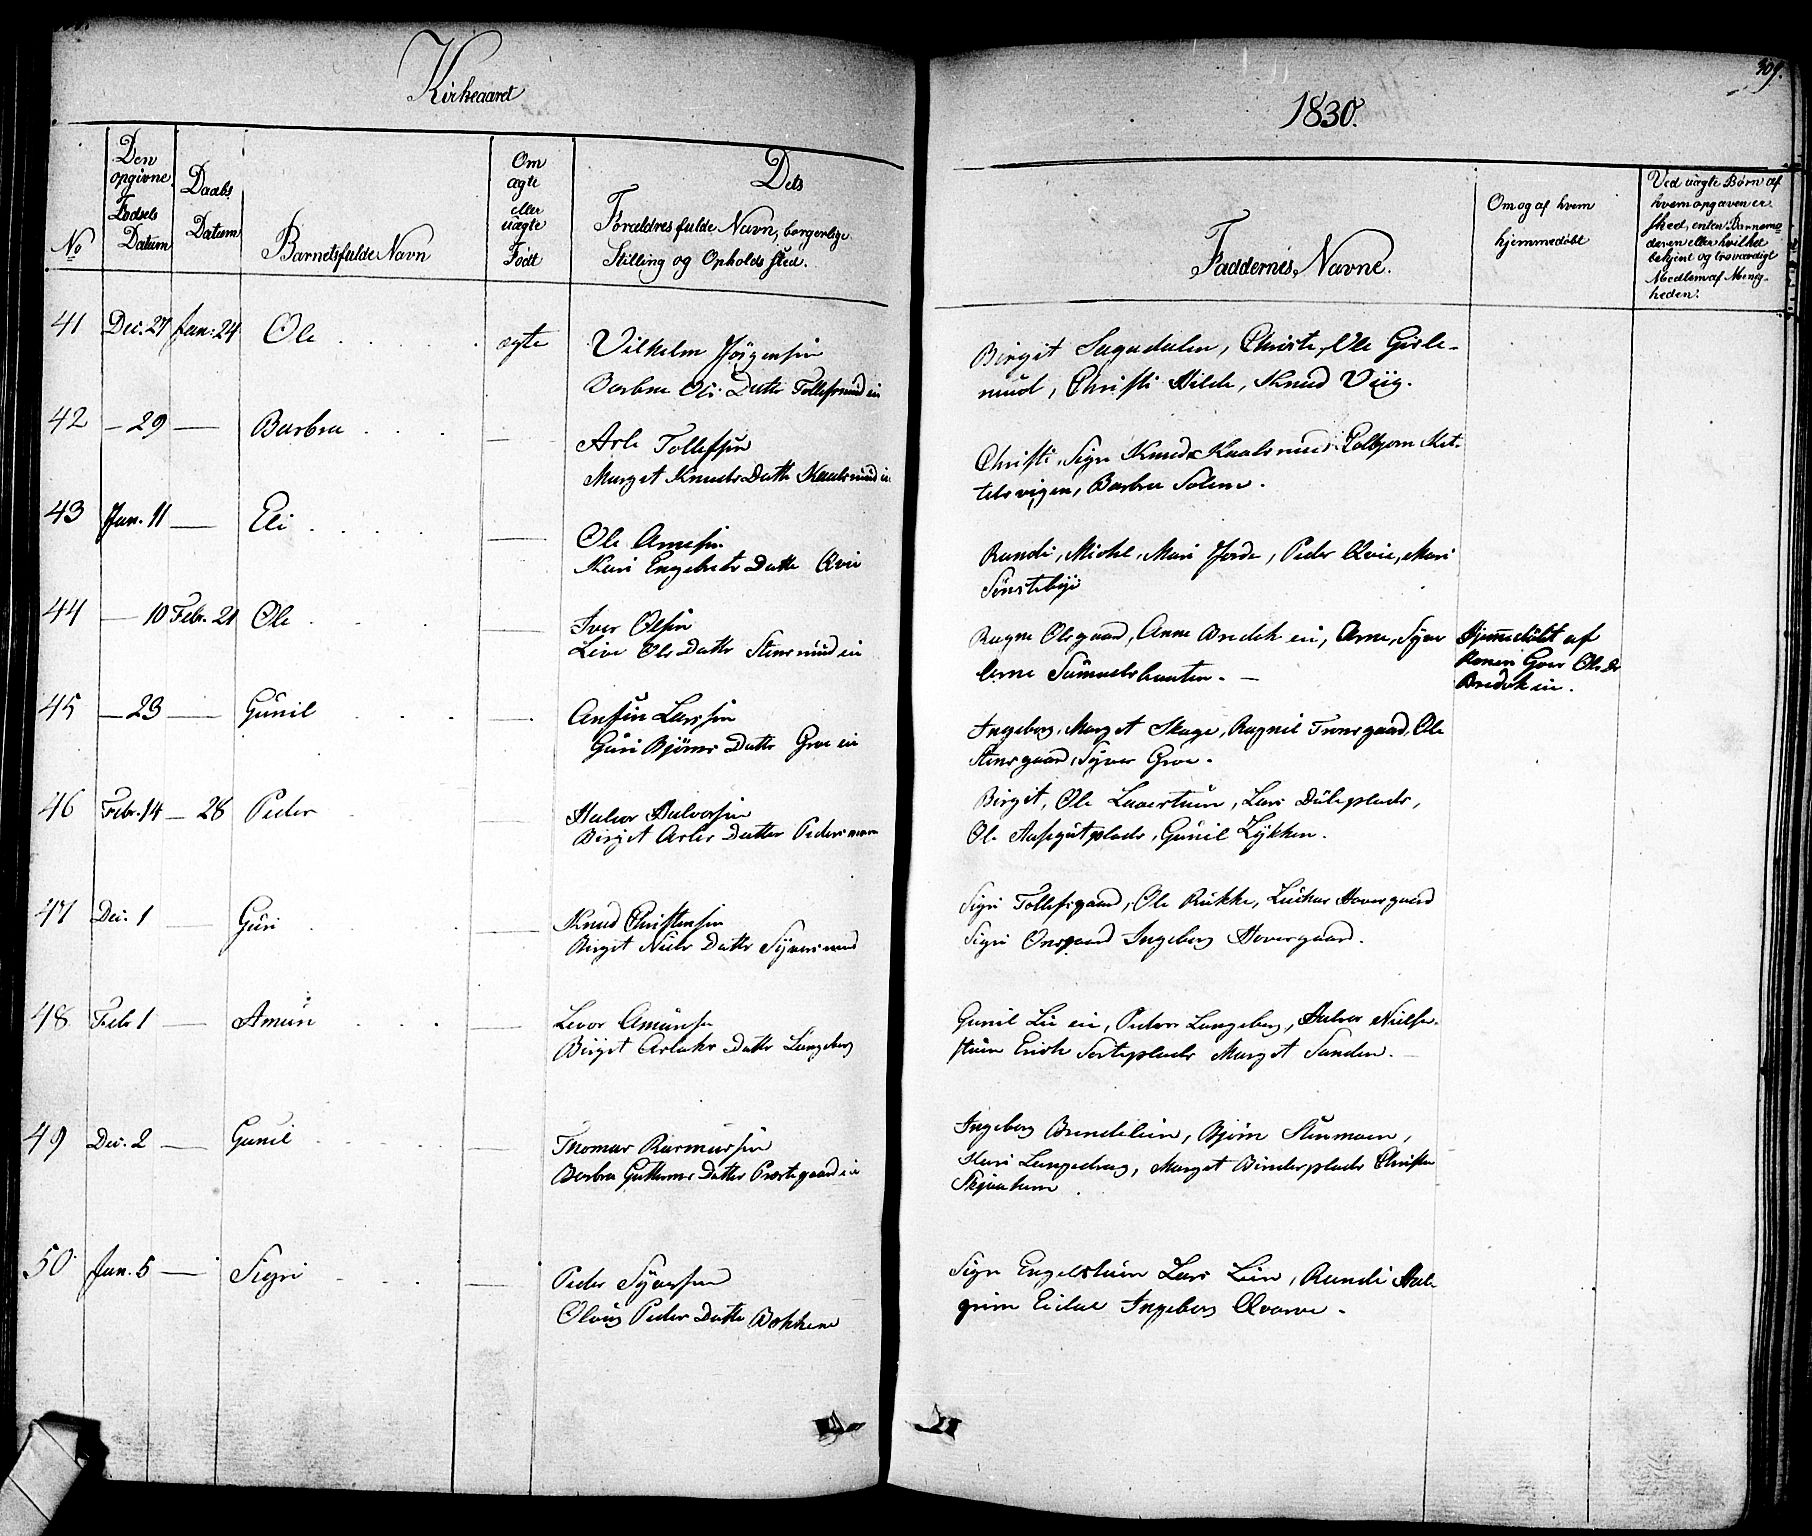 Kirkeaaret
1830.
309.
No
Den opgivne Fødsels Datum
Daabs Datum
Barnets fulde Navn
Om ægte eller uægte Født
Dets
Forældres fulde Navn, borgerlige
Stilling og Opholds sted.
Faddernes Navne.
Om og af hvem
hjemmedøbt
Ved uægte Børn af
hvem opgaven er
skeed, enten Barnemo-
deren eller hvilket
bekjent og troværdigt
Medlem af Menig-
heden.
41 Dec. 27 Jan. 24 Ole ægte Vilhelm Jörgensen
Barbra Ols Datter Tollefsrud ei
Birgit Sagadalen, Christi, Ole Gisle-
rud, Christi Hilde, Knud Viig.
42 — 29 — Barbra — Arle Tollefsen
Marget Knuds Datter Kaalsrud ei
Christi, Sigri Knud Kaalsrud Colbjorn Ket-
telsvigen, Barbra Solem.
43 Jan. 11 — Eli — Ole Arnesen
Kari Engebrets Datter Qvie
Randi, Mickel, Mari Jorde, Peder Qvie, Mari
Sönsteby
44 — 10 Febr. 21 Ole — Iver Olsen
Live Ols Datter Stensrud ei
Ragne Olsgaard, Anne Bredek ei, Arne, Syver
Arne Samuelshaugen. —
Hjemmedöbt af
Konen Goer Ols Dr
Bredek ei.
45 — 23 — Gunil — Ansten Larsen
Guri Björns Datter Groe ei
Ingeborg, Marget Skage, Ragnil Tronsgaard, Ole
Stensgaard, Syver Groe.
46 Febr. 14 — 28 Peder — Halvor Halvorsen
Birgit Arles Datter Pedersmoen
Birgit, Ole Lavertuen, Lars Duleplads,
Ole Aasegutplads, Gunil Lykken.
47 Dec. 1 Guri — Knud Christensen
Birget Niels Datter Syversrud
Sigri Tollefsgaard, Ole Rukke, Hoversgaard
Sigri Onsgaard Ingeborg Hoversgaard.
48 Febr 1 — Amun — Levor Amunsen
Birget Aslaks Datter Langeberg
Gunil Lie ei, Peder Langeberg, Halvor Nielse-
stuen Erich Sorteplads Marget Sanden.
49 Dec. 2 — Gunil — Thomas Rasmussen
Barbra Guttorms Datter Prestegaard ei
Ingeborg Brendelien, Björn Steinmoen,
Kari Langedrag, Marget Binderplads Christen
50 Jan. 5 — Sigri — Peder Syversen
Oloug Peders Datter Bakkene
Sigri Engelstuen Lars Lien, Randi Hal-
grim Eidal Ingeborg Qvarve.